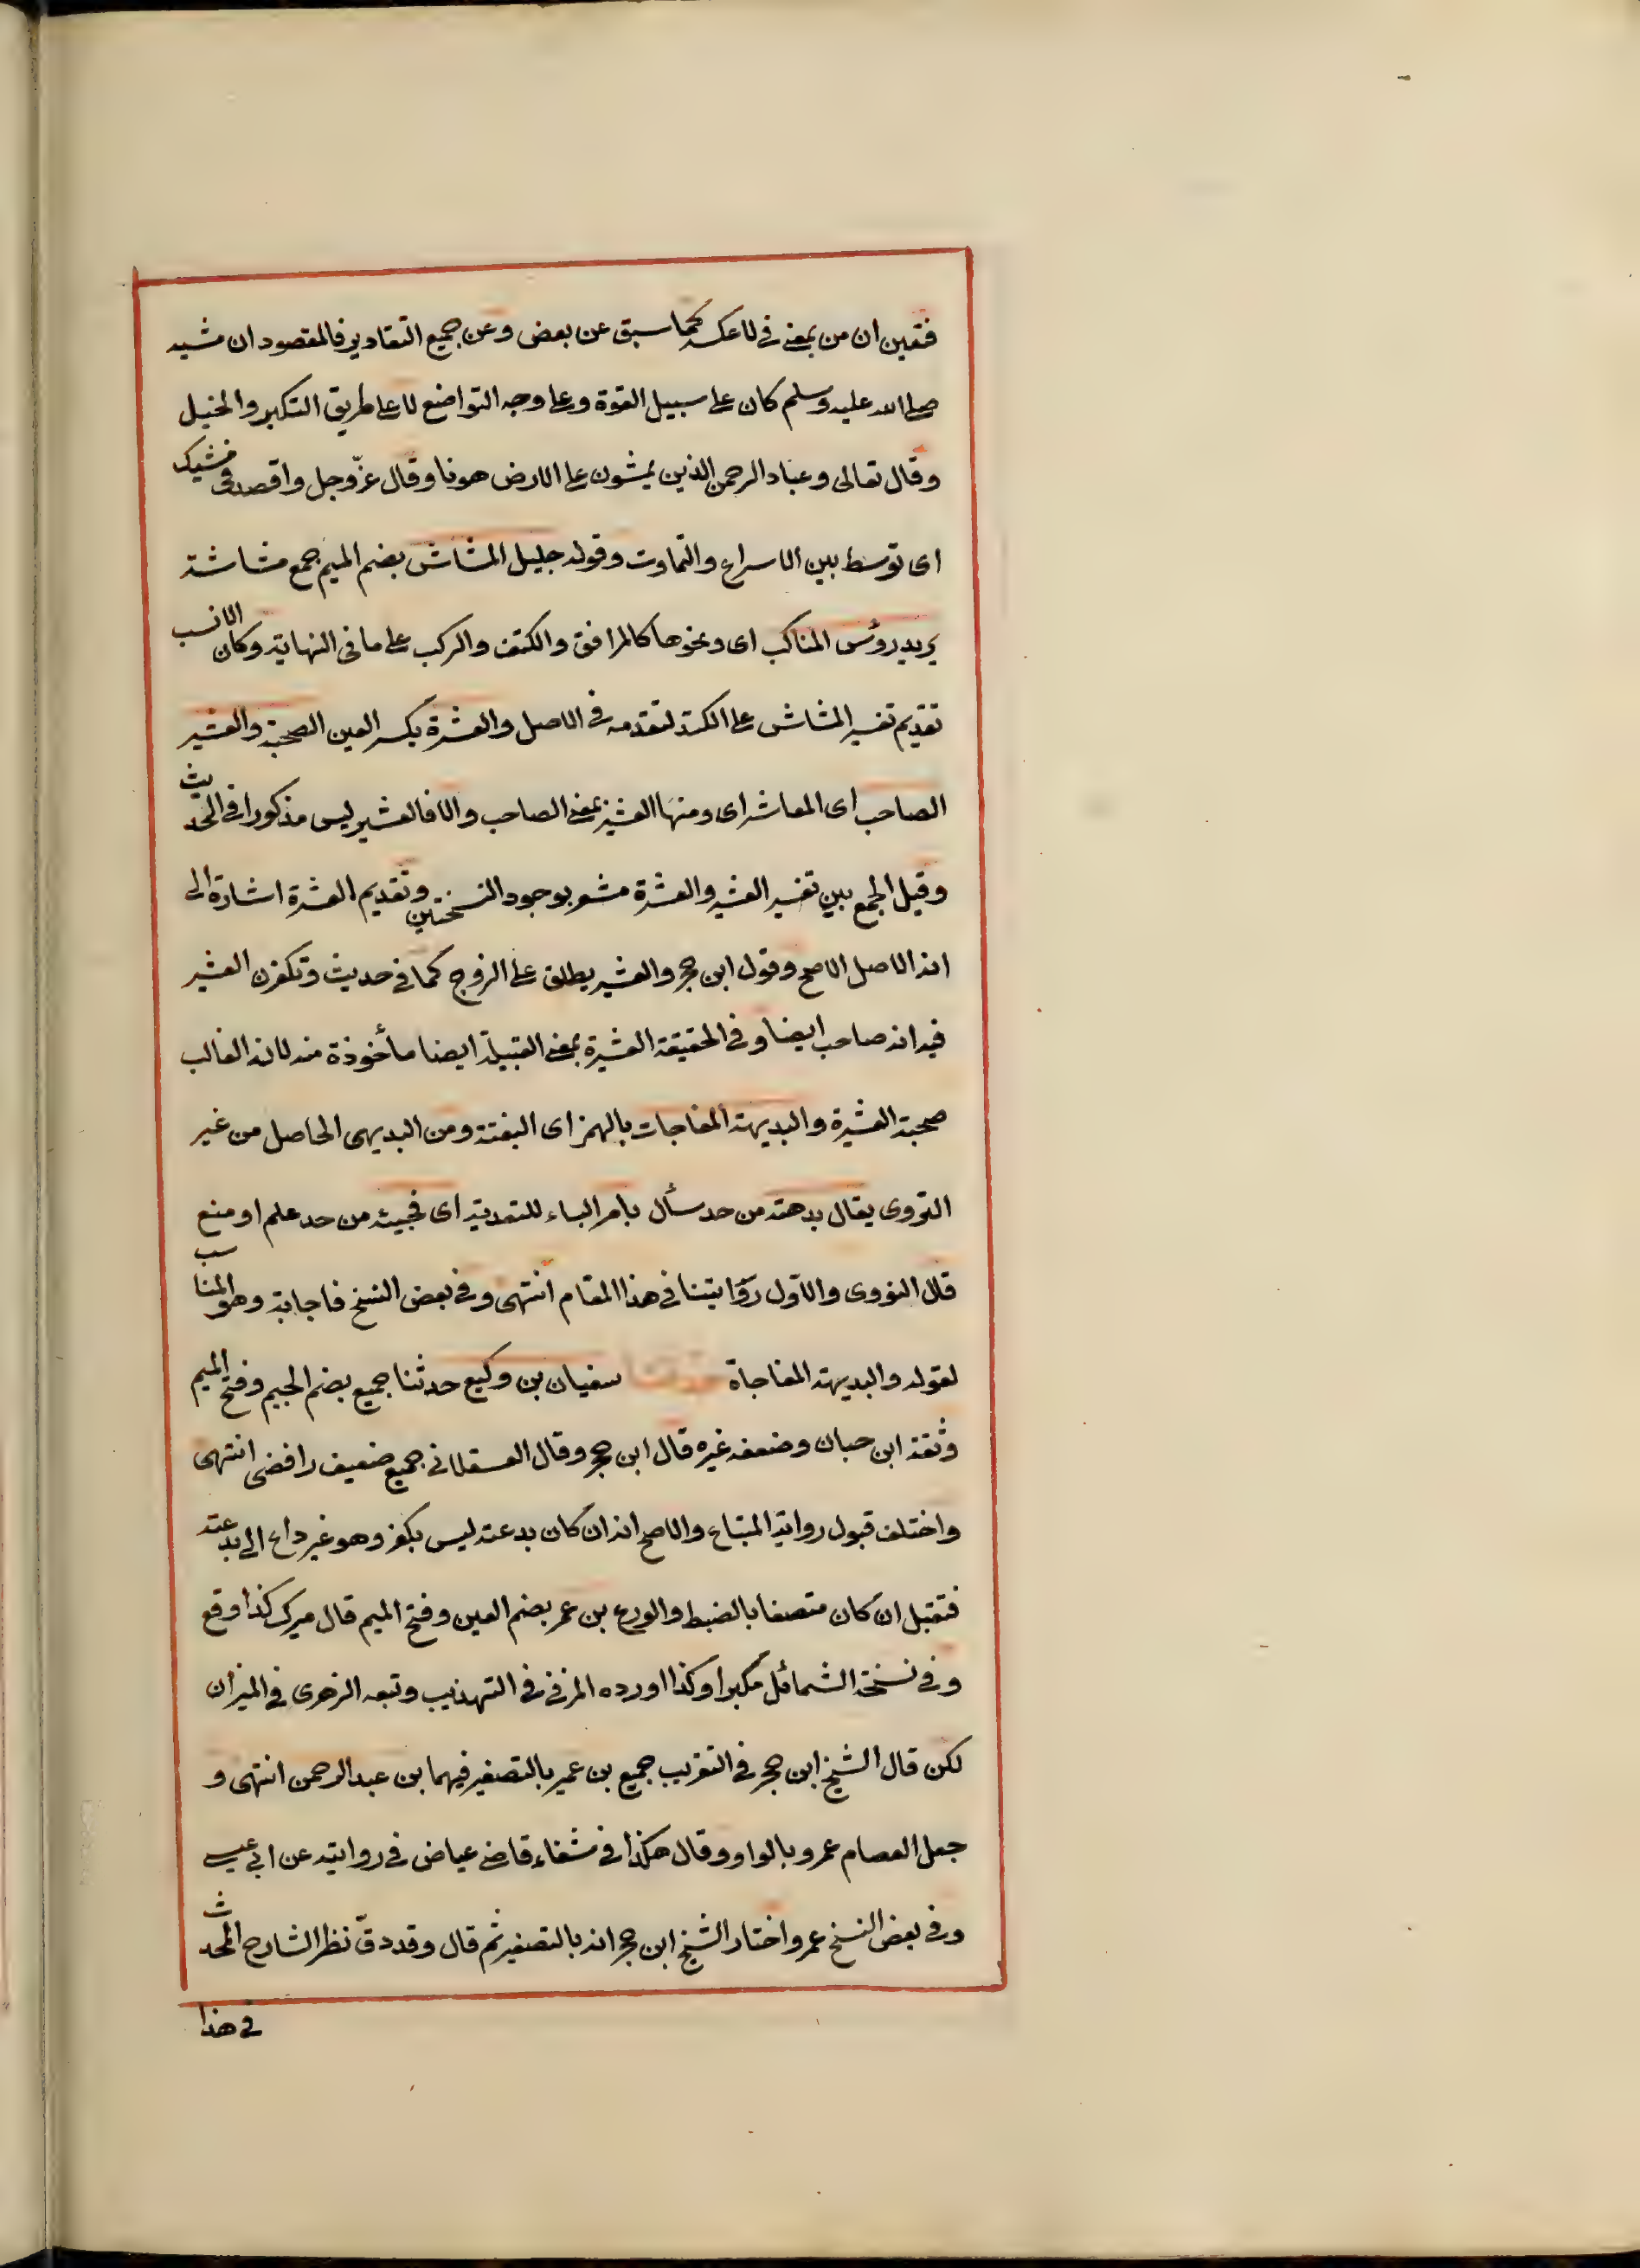 فتعين ان من بمعنى فى لا عكسه كما سبق عن بعض وعن جميع التقادير فالمقصود ان مشيه
صلى الله عليه وسلم كان على سبيل القوة وعلى وجه التواضع لا على طريق التكبر والخيل
وقال تعالى وعباد الرحمن الذين يمشون على الارض هونا وقال عزّ وجل واقصد فى مشيك
اى توسط بين الاسراع والتماوت وقوله جليل المشاش بضم الميم جمع مشاشة
يريد رؤس المناكب اى ونحوها كالمرافق والكتف والركب على ما فى النهاية وكان الانسب
تقديم تفسير المشاش على الكتد لتقدمه فى الاصل والعشرة بكسر العين الصحبة والعشير
الصاحب اى المعاشر اى ومنها العشير بمعنى الصاحب والا فالعشير ليس مذكورا فى الحديث
وقيل الجمع بين تفسير العشير والعشرة مشعر بوجود النسختين وتقديم العشرة اشارة الى
انه الاصل الاصح وقول ابن حجر والعشير يطلق على الزوج كما فى حديث وتكفرن العشير
فيه انه صاحب ايضا وفى الحقيقة العشيرة بمعنى القبيلة ايضا مأخوذة منه لانه الغالب
صحبة العشيرة والبديهة المفاجات بالهمز اى البغتة ومن البديهى الحاصل من غير
التروى يقال بدهته من حد سأل بامر الباء للتعدية اى فجيئه من حد علم او منع
قال النووى والاول روايتنا فى هذا المقام انتهى وفى بعض النسخ فاجاية وهو المناسب
لقوله والبديهة المفاجاة حدثنا سفيان بن وكيع حدثنا جميع بضم الجيم وفتح الميم
وثقه ابن حبان وضعفه غيره قال ابن حجر وقال العسقلانى جميع ضعيف رافضى انتهى
واختلف قبول رواية المبتاع والاصح انه ان كان بدعته ليس بكفر وهو غير داع الى بدعته
فتقبل ان كان متصفا بالضبط والورع بن عمر بضم العين وفتح الميم قال ميرك كذا وقع
وفى نسخة الشمائل مكبرا وكذا اورده المزنى فى التهذيب وتبعه الزهرى فى الميزان
لكن قال الشيخ ابن حجر فى التقريب جميع بن عمير بالتصغير فيهما بن عبد الرحمن انتهى و
جعل العصام عمرو بالواو وقال هكذا فى شفاء قاضى عياض فى روايته عن ابى عيسى
وفى بعض النسخ عمر واختار الشيخ ابن حجر انه بالتصغير ثم قال وقد دقّ نظر الشارح المحدث
فى هذا